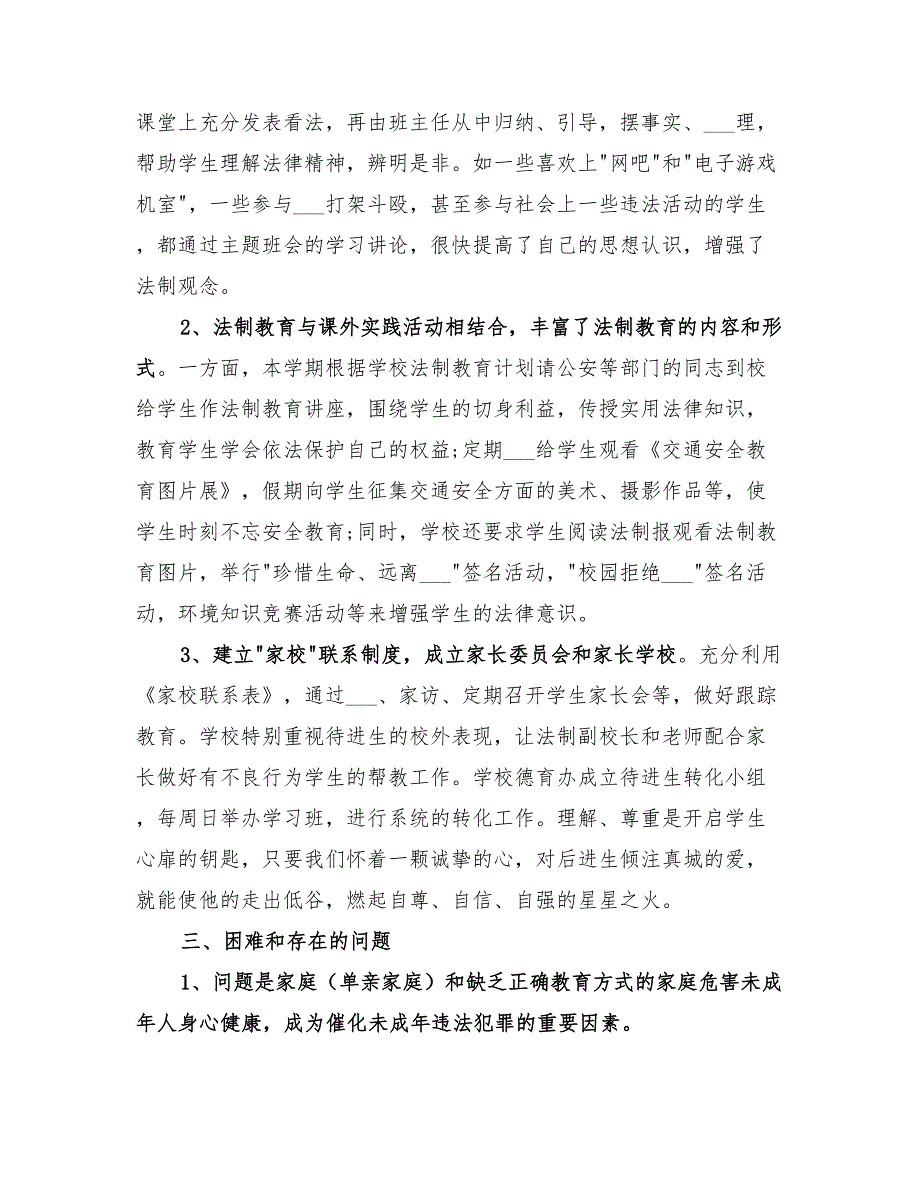 课堂上充分发表看法，再由班主任从中归纳、引导，摆事实、___理，
帮助学生理解法律精神，辨明是非。如一些喜欢上"网吧"和"电子游戏
机室"，一些参与___打架斗殴，甚至参与社会上一些违法活动的学生
，都通过主题班会的学习讲论，很快提高了自己的思想认识，增强了
法制观念。
2、法制教育与课外实践活动相结合，丰富了法制教育的内容和形
式。一方面，本学期根据学校法制教育计划请公安等部门的同志到校
给学生作法制教育讲座，围绕学生的切身利益，传授实用法律知识，
教育学生学会依法保护自己的权益;定期___给学生观看《交通安全教
育图片展》，假期向学生征集交通安全方面的美术、摄影作品等，使
学生时刻不忘安全教育;同时，学校还要求学生阅读法制报观看法制教
育图片，举行"珍惜生命、远离___"签名活动，"校园拒绝___"签名活
动，环境知识竞赛活动等来增强学生的法律意识。
3、建立"家校"联系制度，成立家长委员会和家长学校。充分利用
《家校联系表》，通过___、家访、定期召开学生家长会等，做好跟踪
教育。学校特别重视待进生的校外表现，让法制副校长和老师配合家
长做好有不良行为学生的帮教工作。学校德育办成立待进生转化小组
，每周日举办学习班，进行系统的转化工作。理解、尊重是开启学生
心扉的钥匙，只要我们怀着一颗诚挚的心，对后进生倾注真城的爱，
就能使他的走出低谷，燃起自尊、自信、自强的星星之火。
三、困难和存在的问题
1、问题是家庭（单亲家庭）和缺乏正确教育方式的家庭危害未成
年人身心健康，成为催化未成年违法犯罪的重要因素。